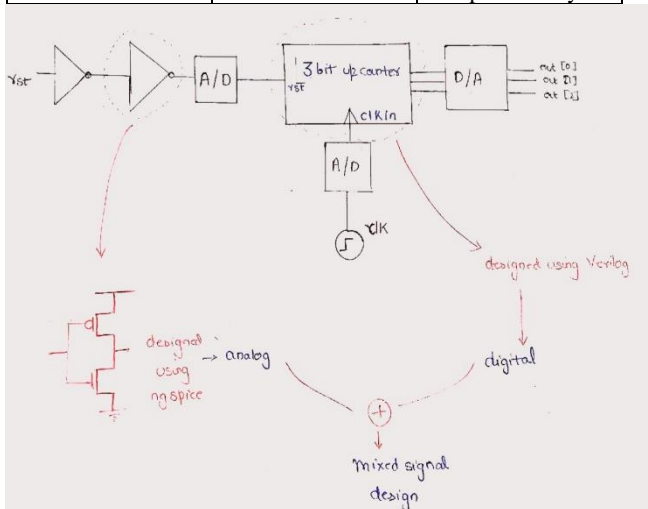 rst
A/D
3 bit up counter
rst
clkin
D/A
out [0]
out [1]
out [2]
A/D
clk
designed using Verilog
designed
using
ngspice
→ analog
digital
+
mixed signal
design